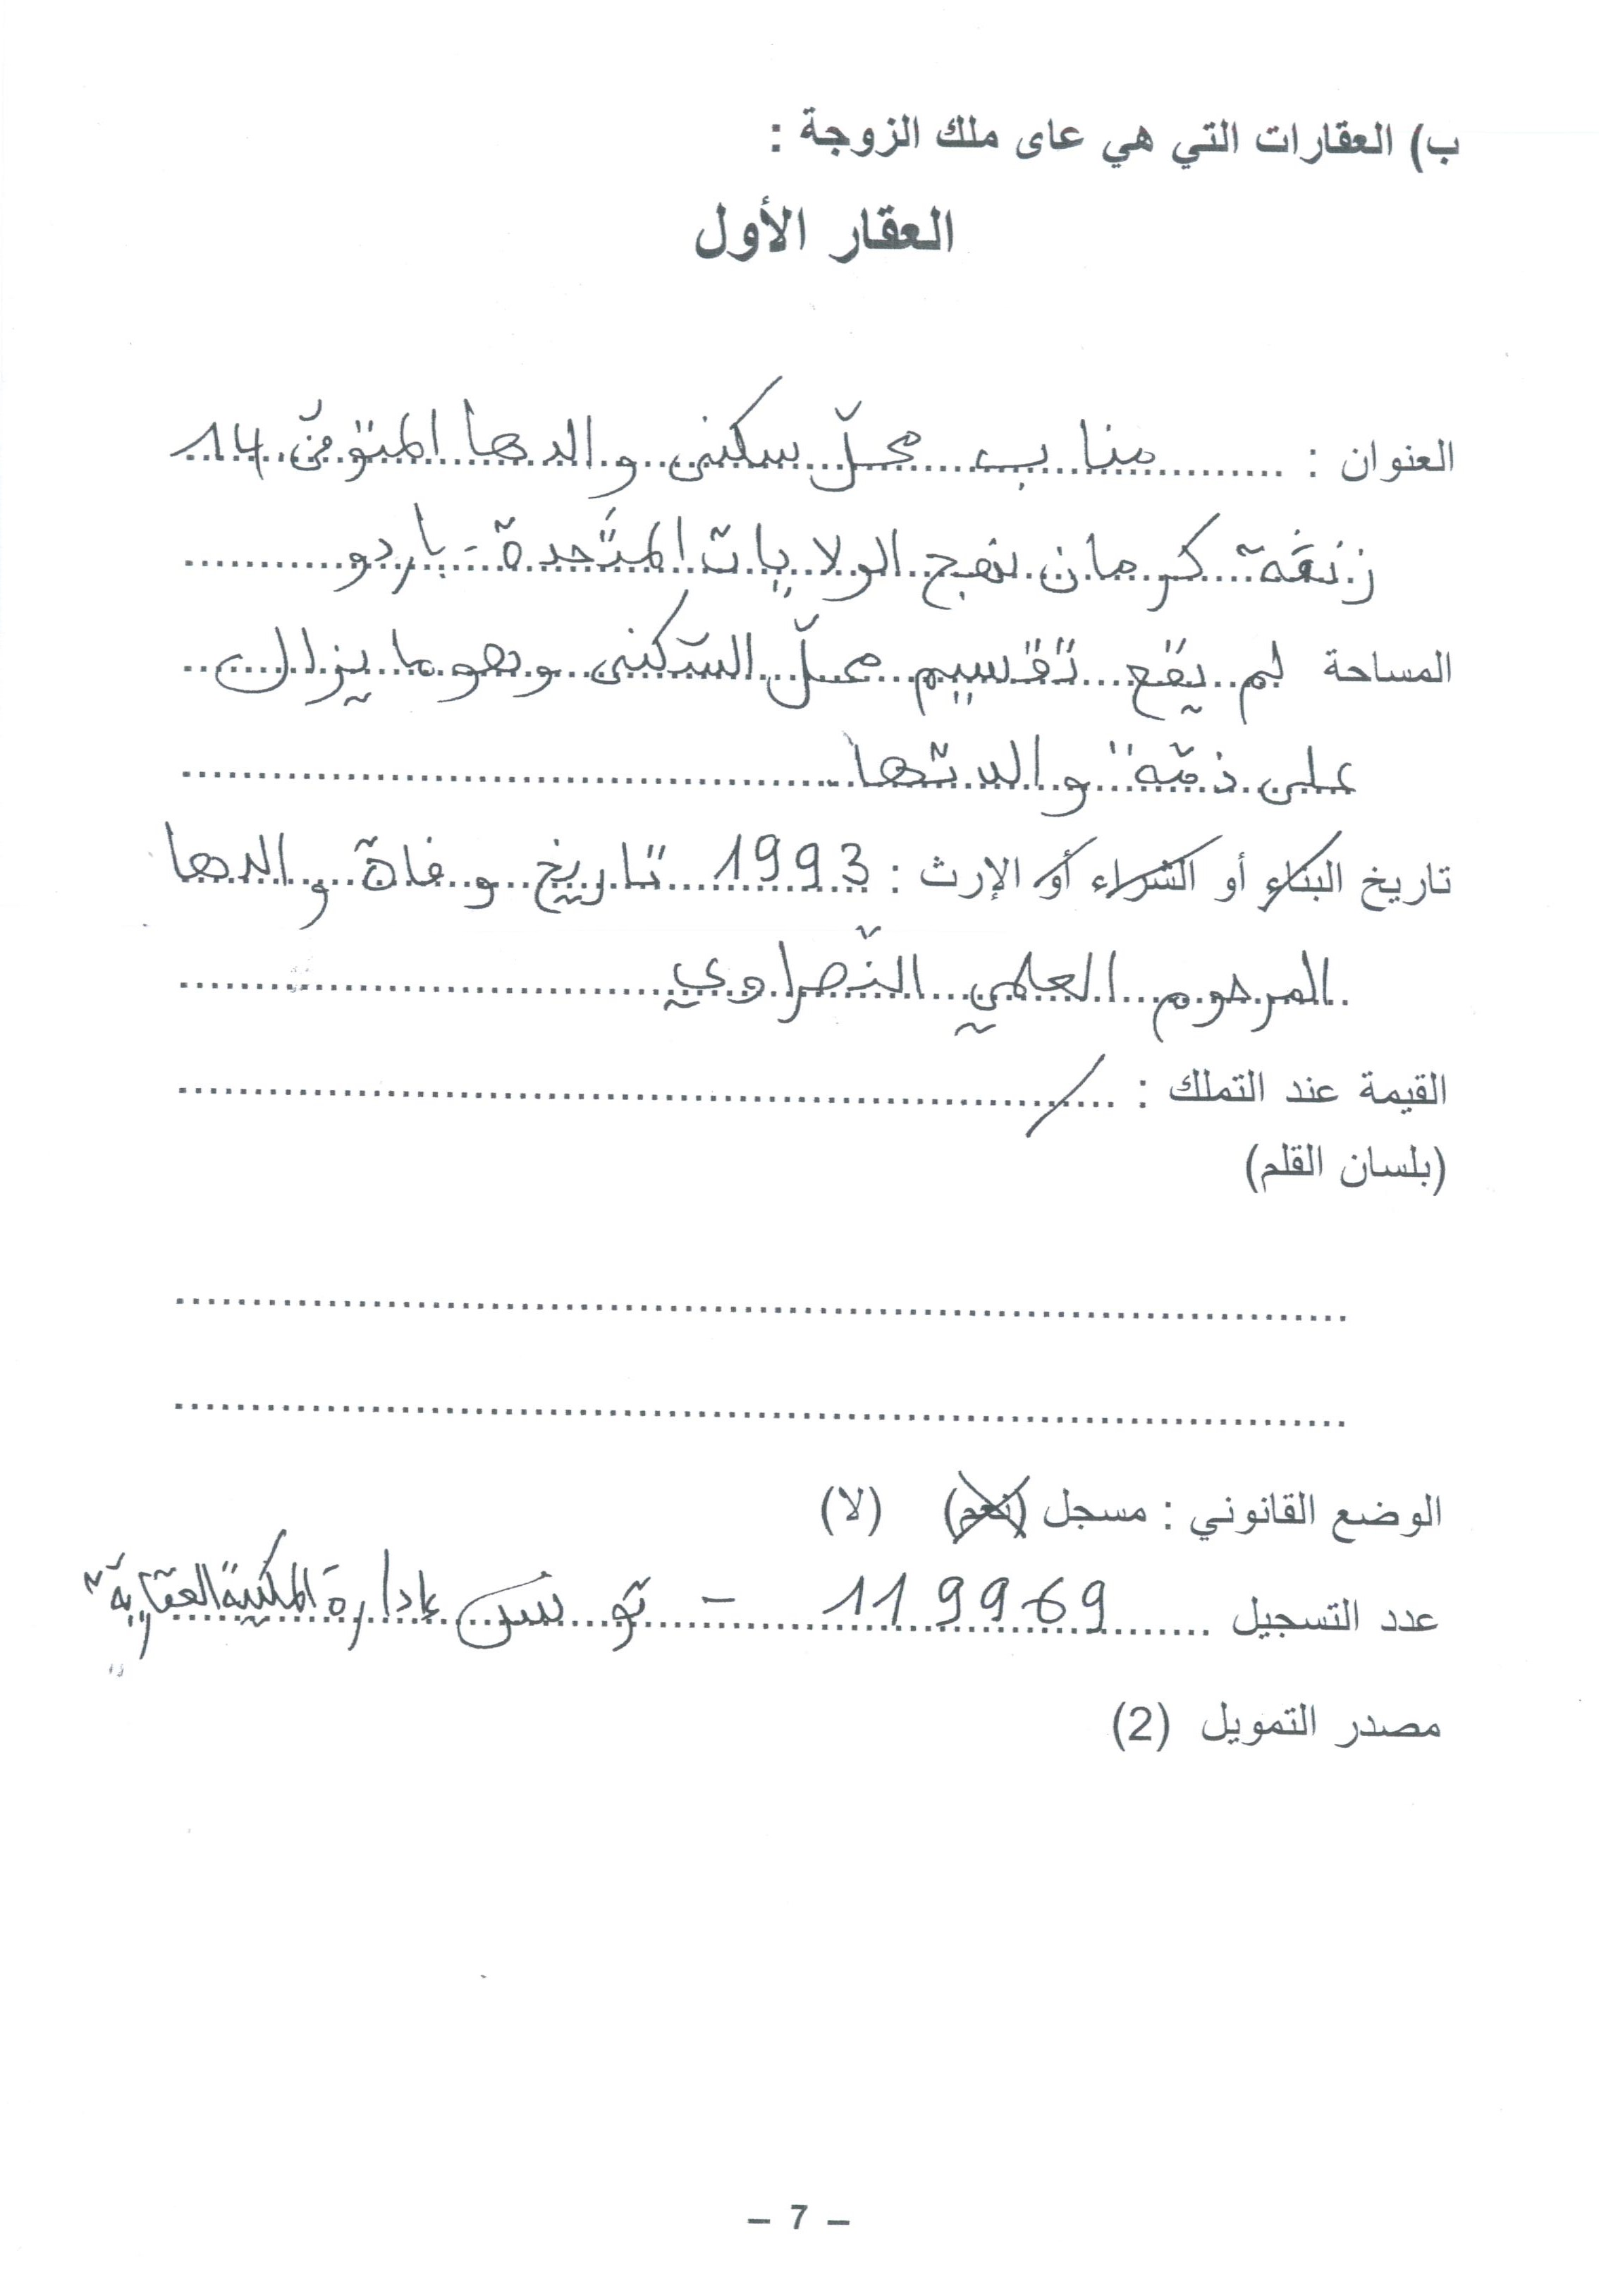 ب) العقارات التي هي عاى ملك الزوجة :
العقار الأول
العنوان : مناب محلّ سكنى والدها المتوفّى 14
زنقة كرمان نهج الولايات المتّحدة - باردو
المساحة لم يقع تقسيم محلّ السّكنى وهو ما يزال
على ذمّة والدتها
تاريخ البناء أو الشراء أو الإرث : 1993 تاريخ وفاة والدها
المرحوم العلمي النّصراوي
القيمة عند التملك : /
(بلسان القلم)
الوضع القانوني : مسجل (نعم) (لا)
عدد التسجيل 119969 - تونس إدارة الملكية العقارية
مصدر التمويل (2)
– 7 –